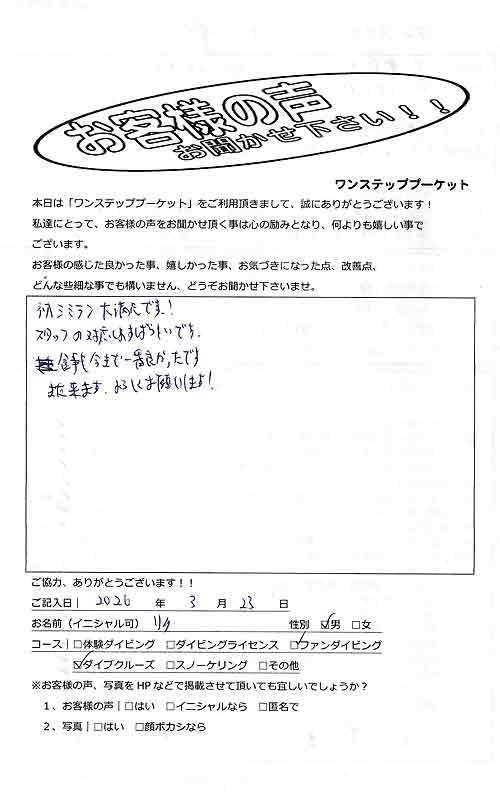 お客様の声
お聞かせ下さい！！
ワンステッププーケット
本日は「ワンステッププーケット」をご利用頂きまして、誠にありがとうございます！
私達にとって、お客様の声をお聞かせ頂く事は心の励みとなり、何よりも嬉しい事で
ございます。
お客様の感じた良かった事、嬉しかった事、お気づきになった点、改善点、
どんな些細な事でも構いません、どうぞお聞かせ下さいませ。
初シミラン大満足です！
スタッフの対応もすばらしいです。
食事も今まで一番良かったです
また来ます。よろしくお願いします！
ご協力、ありがとうございます！！
ご記入日｜ 2026 年 3 月 23 日
お名前（イニシャル可） リク 性別 ☑男 □女
コース｜□体験ダイビング □ダイビングライセンス ☑ファンダイビング
☑ダイブクルーズ □スノーケリング □その他
※お客様の声、写真をHPなどで掲載させて頂いても宜しいでしょうか？
1、お客様の声｜□はい □イニシャルなら □匿名で
2、写真｜□はい □顔ボカシなら